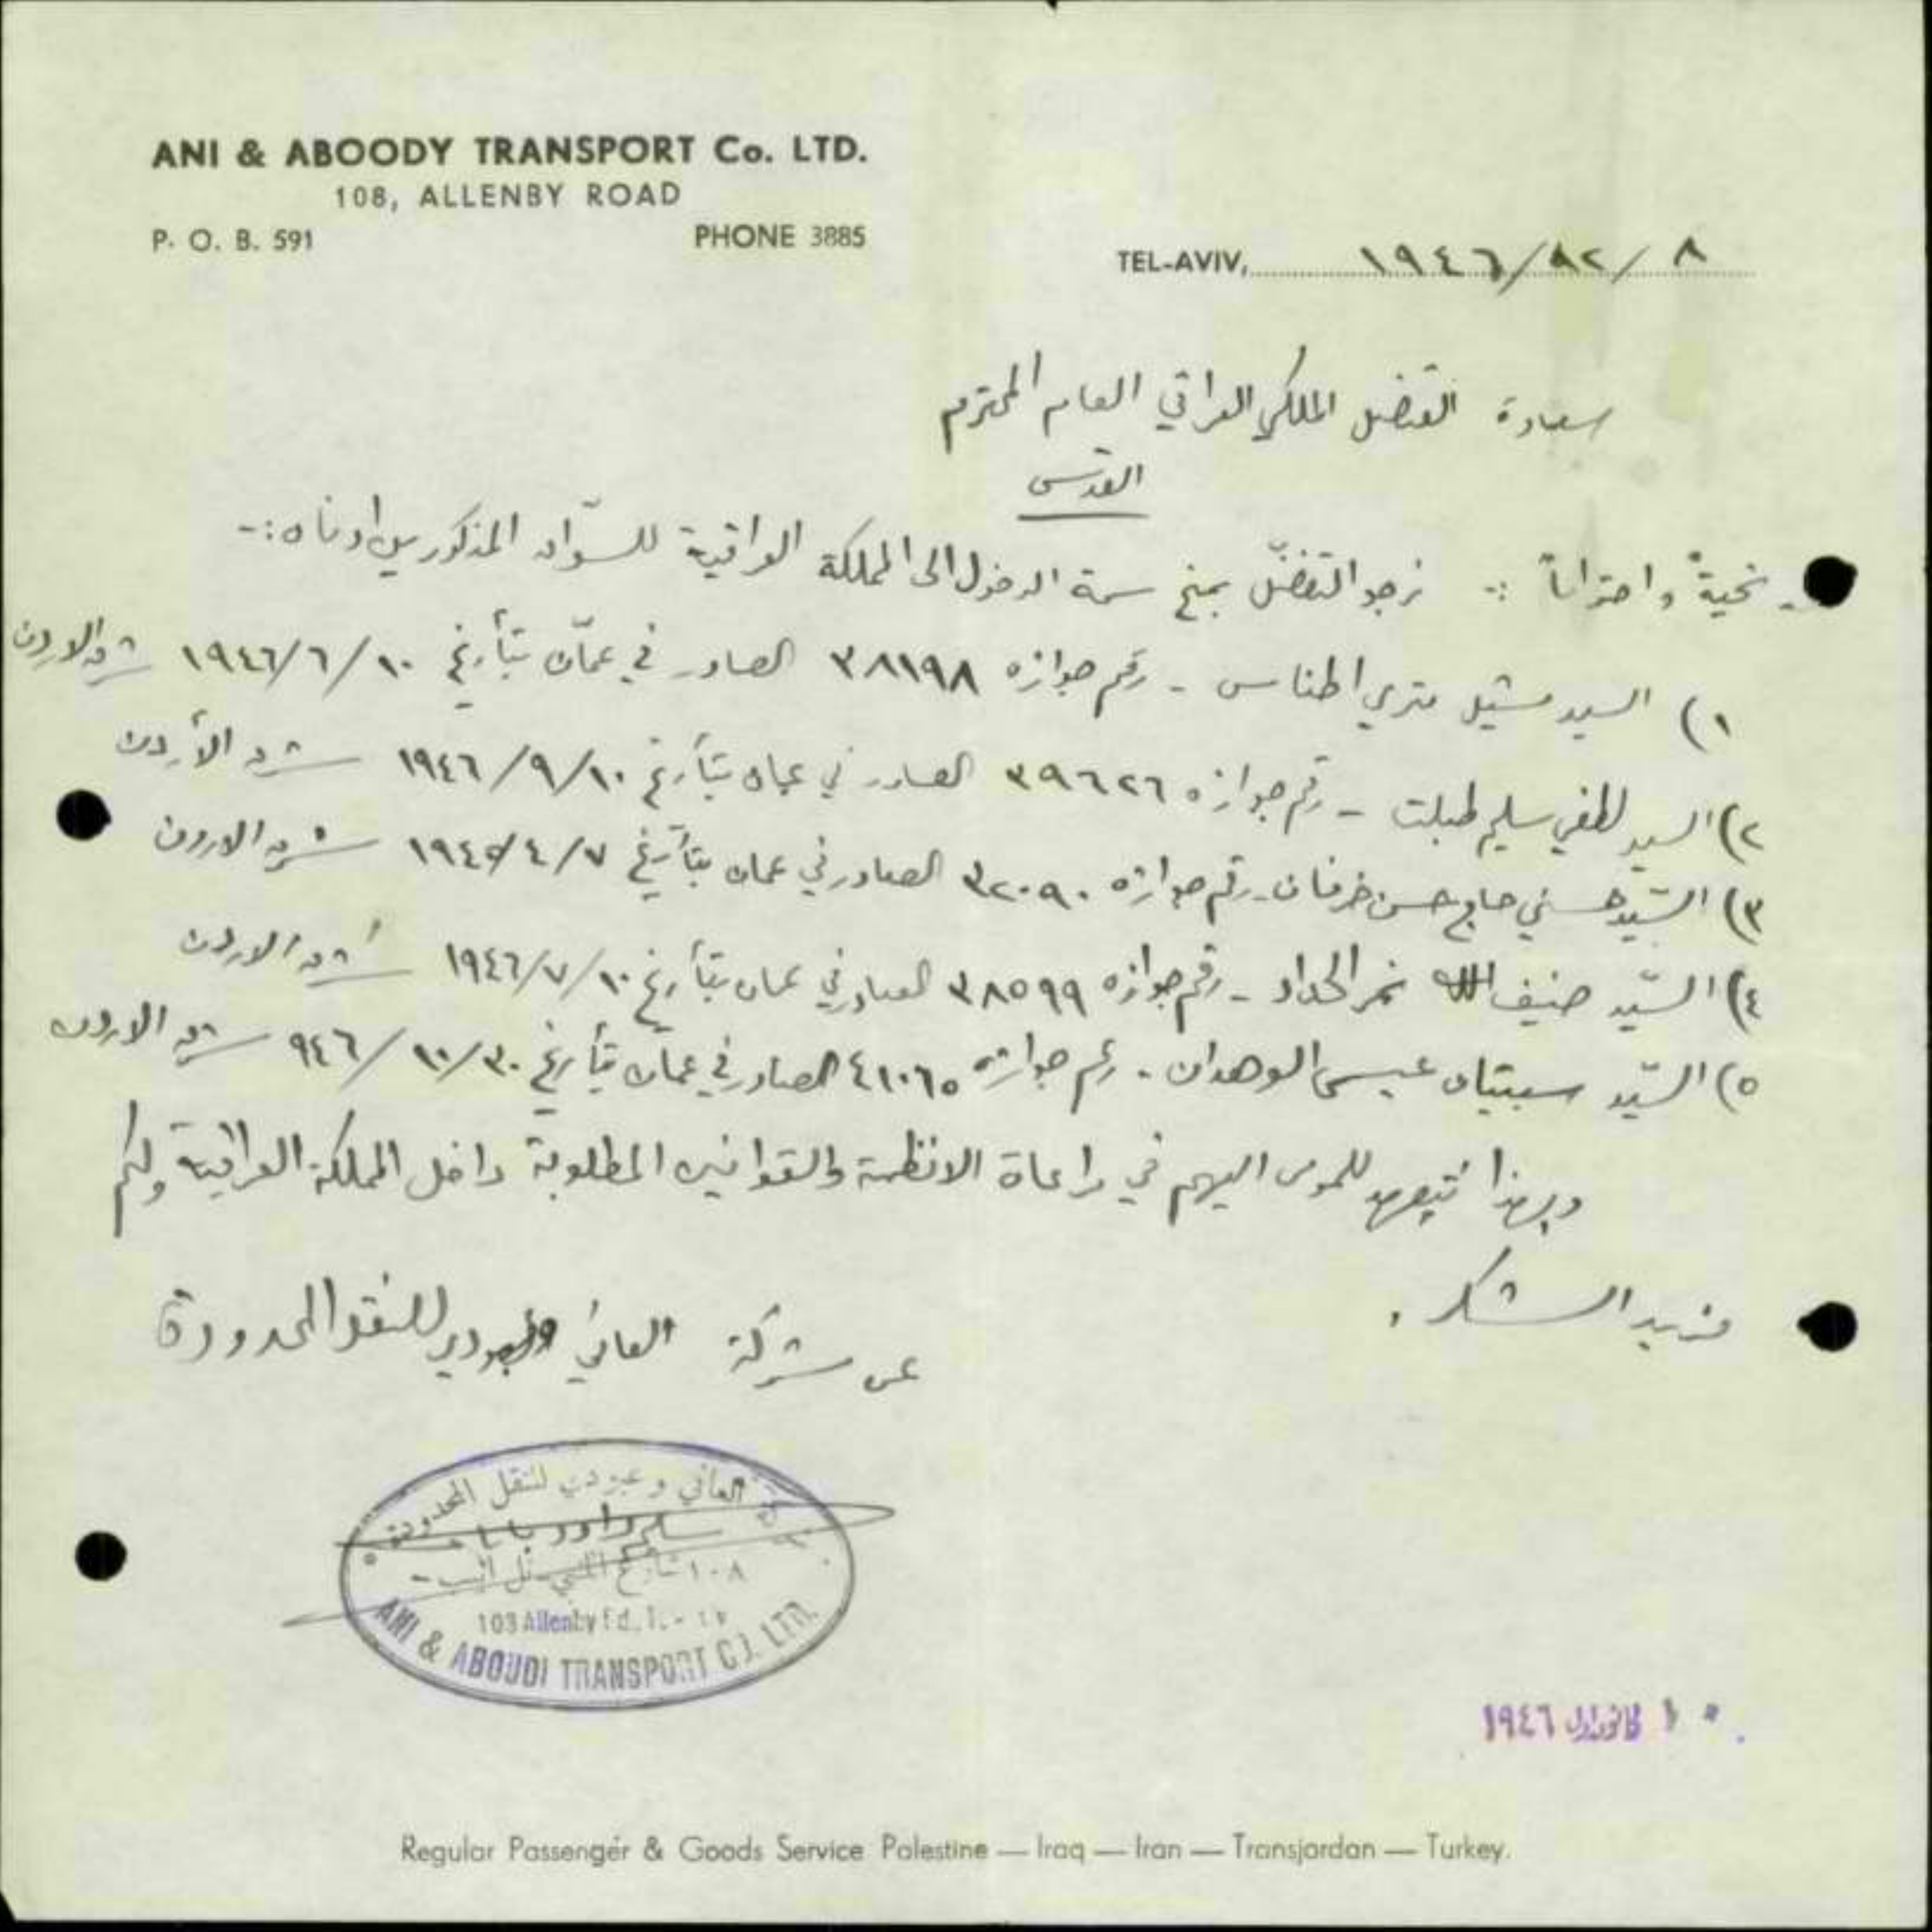 ANI & ABOODY TRANSPORT Co. LTD.
108, ALLENBY ROAD
P. O. B. 591 PHONE 3885
TEL-AVIV, ٨ / ١٢ / ١٩٤٦
سعادة القنصل الملكي العراقي العام المحترم
القدس
تحية واحتراماً :- نرجو التفضّل بمنح سمة الدخول الى المملكة العراقية للسوّاد المذكورين ادناه :-
١) السيد مشيل متري اطناس - رقم جوازه ٣٨١٩٨ الصادر في عمّان بتأريخ ١٠/٦/١٩٤٦ شرق الاردن
٢) السيد لطفي سليم طبلت - رقم جوازه ٣٩٦٢٦ الصادر في عمان بتأريخ ١٠/٩/١٩٤٦ شرق الأردن
٣) السّيد حسني حاج حسن خرفان - رقم جوازه ٣٢٠٩٠ الصادر في عمان بتأريخ ٧/٤/١٩٤٥ شرق الاردن
٤) السّيد ضيف الله نمر الحداد - رقم جوازه ٣٨٥٩٩ الصادر في عمان بتأريخ ١٠/٧/١٩٤٦ شرق الاردن
٥) السّيد سبيتان عيسى الوهدان - رقم جوازه ٤١٠٦٥ الصادر في عمان بتأريخ ٣٠/١٠/٩٤٦ شرق الاردن
وبهذا نتعهد للمومى اليهم في مراعاة الانظمة والقوانين المطلوبة داخل المملكة العراقية ولكم
مزيد الشكر .
عن شركة العاني والعبودي للنقل المحدودة
العاني وعبودي للنقل المحدودة
١٠٨ شارع اللنبي - تل ابيب -
108 Allenby Rd. T.-
ANI & ABOUDI TRANSPORT CO. LTD.
١٩٤٦
Regular Passenger & Goods Service Palestine — Iraq — Iran — Transjordan — Turkey.